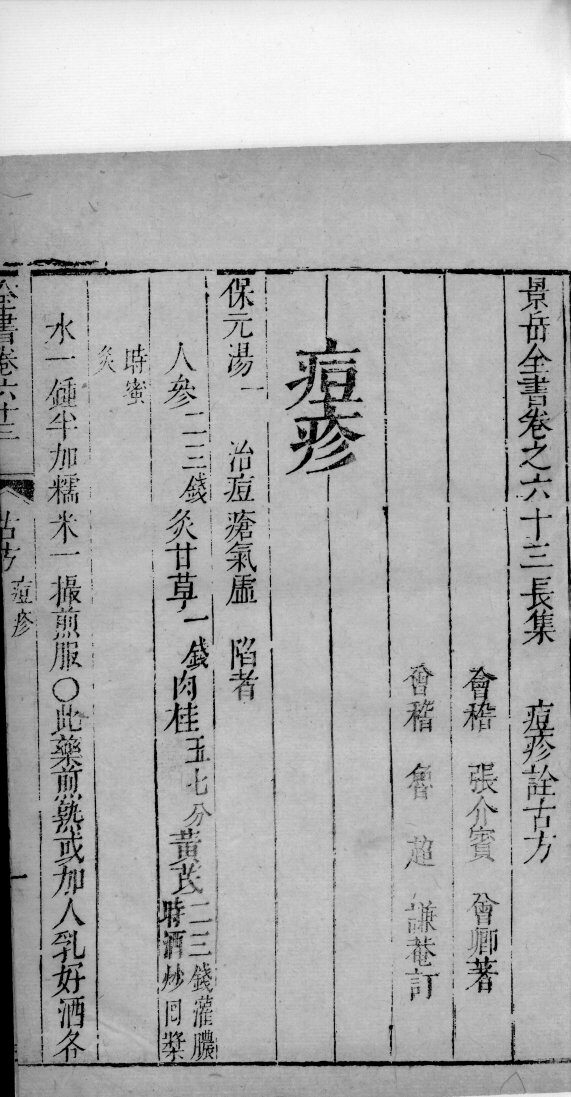 景岳全書卷之六十三長集　痘疹詮古方
會稽　張介賓　會卿著
會稽　魯　超　謙菴訂
痘疹
保元湯一　治痘瘡氣虛　陷者
人參二三錢　炙甘草一錢　肉桂五七分　黃芪二三錢灌膿時酒炒回漿
時蜜炙
水一鍾半加糯米一撮煎服〇此藥煎熟或加人乳好酒各
全書卷六十三　古方　痘疹　一